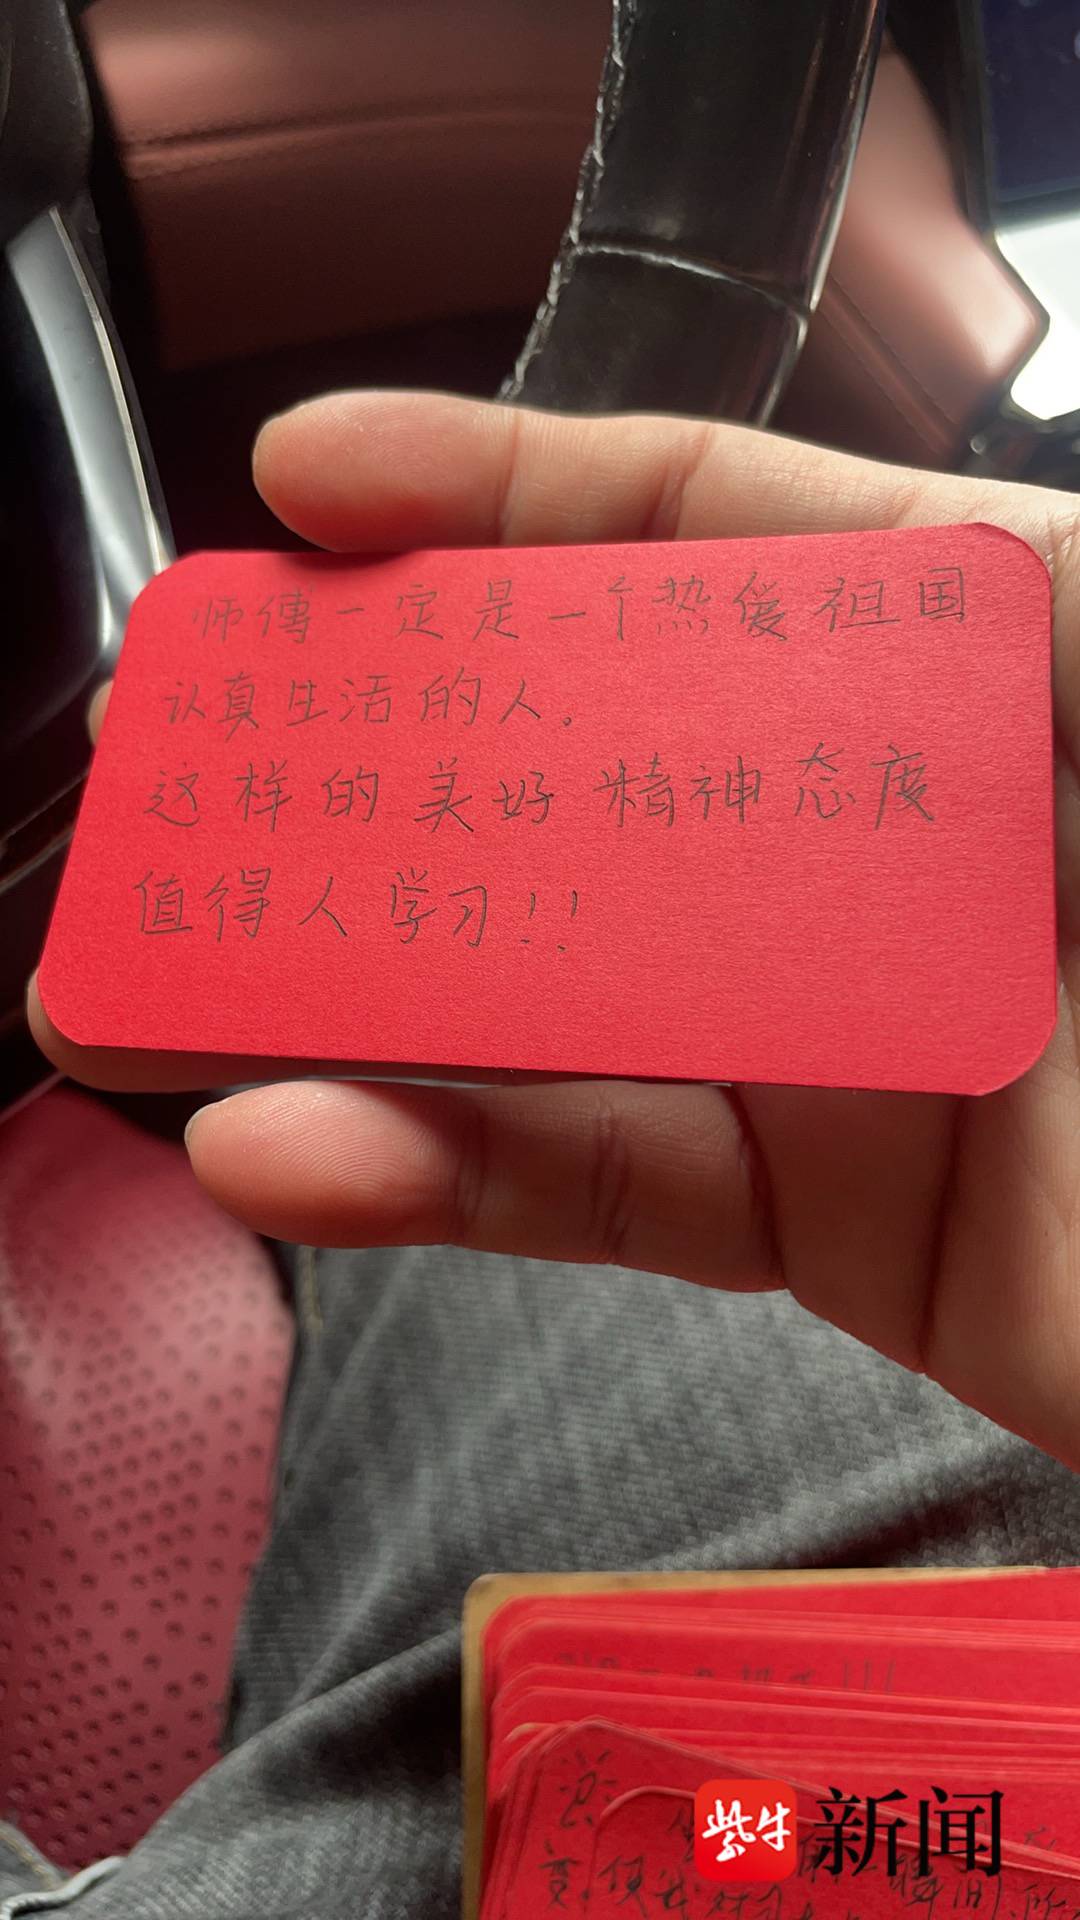 师傅一定是一个热爱祖国
认真生活的人。
这样的美好精神态度
值得人学习!!
紫牛
新闻